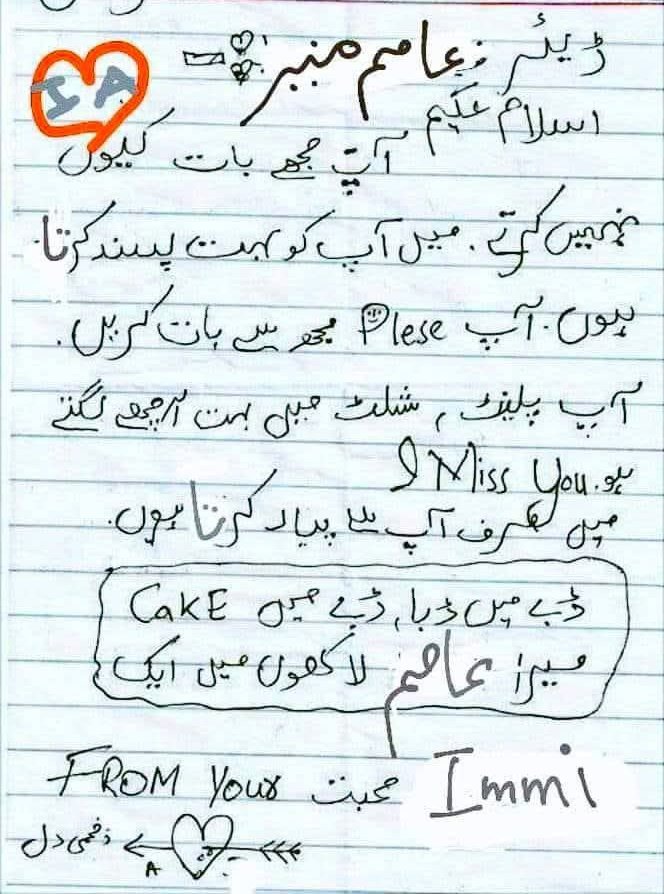 ڈیئر عاصم منیر
I A
اسلام علیکم
آپ مجھے بات کیوں
نہیں کرتے. میں آپ کو بہت پسند کرتا
ہوں. آپ Plese مجھ سے بات کریں.
آپ پلینٹ, شلٹ میں بہت اچھے لگتے
ہو. I Miss You
میں صرف آپ سے پیار کرتا ہوں.
ڈبے میں ڈبا, ڈبے میں CakE
میرا عاصم لاکھوں میں ایک
FROM Your محبت Immi
زخمی دل
A